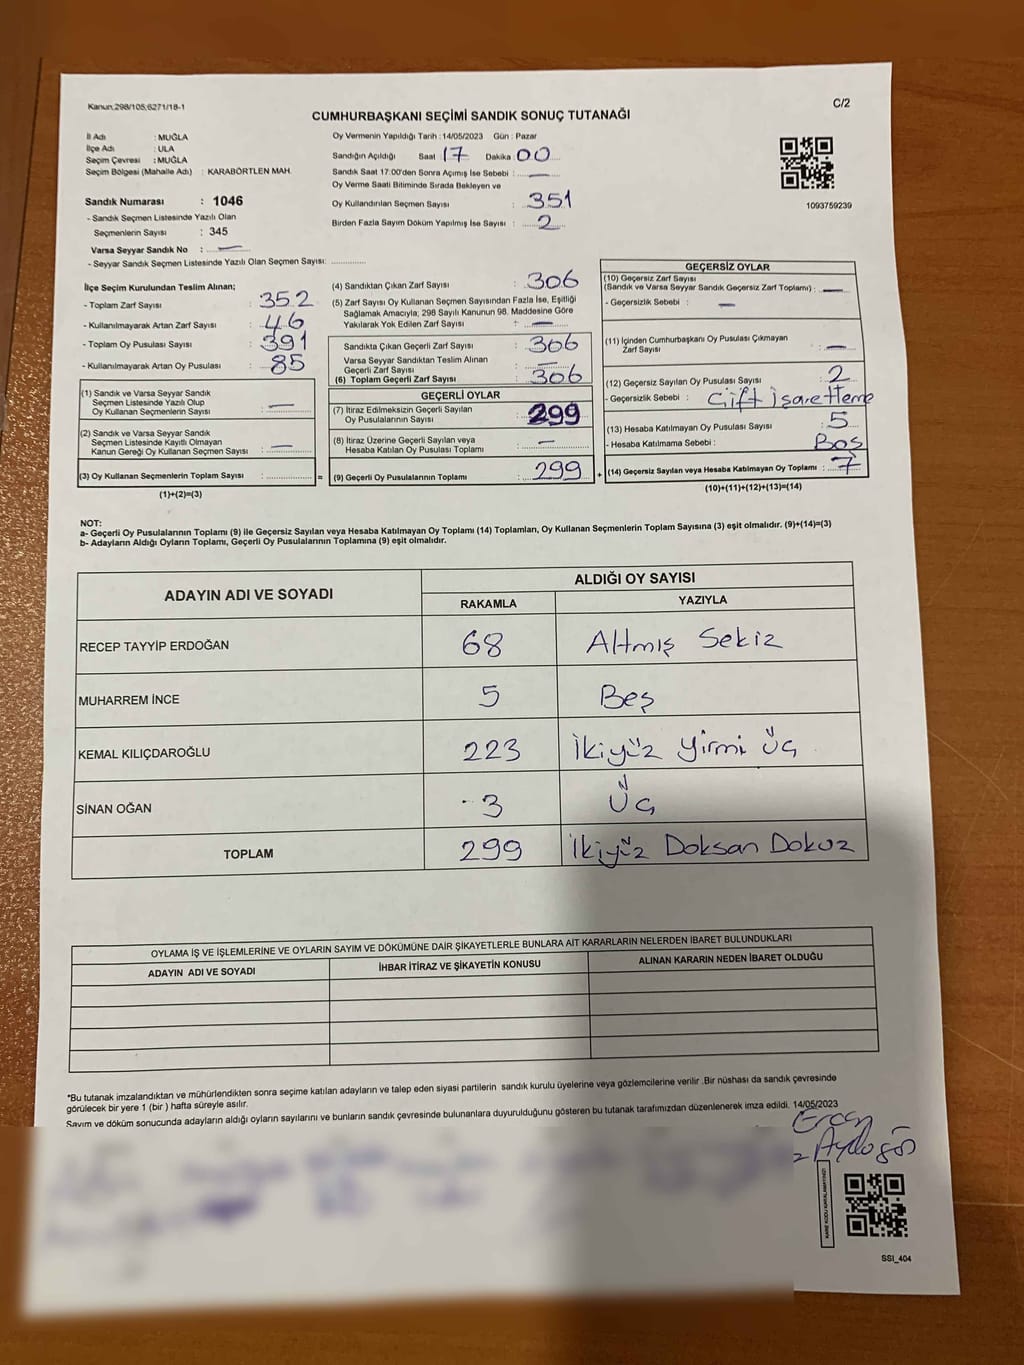 Kanun;298/105;6271/18-1
C/2
CUMHURBAŞKANI SEÇİMİ SANDIK SONUÇ TUTANAĞI
İl Adı : MUĞLA
İlçe Adı : ULA
Seçim Çevresi : MUĞLA
Seçim Bölgesi (Mahalle Adı) : KARABÖRTLEN MAH.
Sandık Numarası : 1046
- Sandık Seçmen Listesinde Yazılı Olan
Seçmenlerin Sayısı : 345
Varsa Seyyar Sandık No : —
- Seyyar Sandık Seçmen Listesinde Yazılı Olan Seçmen Sayısı: ..............
Oy Vermenin Yapıldığı Tarih : 14/05/2023 Gün : Pazar
Sandığın Açıldığı Saat 17 Dakika 00
Sandık Saat 17:00'den Sonra Açımış İse Sebebi : —
Oy Verme Saati Bitiminde Sırada Bekleyen ve
Oy Kullandırılan Seçmen Sayısı : 351
Birden Fazla Sayım Döküm Yapılmış İse Sayısı : 2
1093759239
İlçe Seçim Kurulundan Teslim Alınan;
- Toplam Zarf Sayısı : 352
- Kullanılmayarak Artan Zarf Sayısı : 46
- Toplam Oy Pusulası Sayısı : 391
- Kullanılmayarak Artan Oy Pusulası : 85
(1) Sandık ve Varsa Seyyar Sandık
Seçmen Listesinde Yazılı Olup
Oy Kullanan Seçmenlerin Sayısı : —
(2) Sandık ve Varsa Seyyar Sandık
Seçmen Listesinde Kayıtlı Olmayan
Kanun Gereği Oy Kullanan Seçmen Sayısı : —
(3) Oy Kullanan Seçmenlerin Toplam Sayısı : .............. =
(1)+(2)=(3)
(4) Sandıktan Çıkan Zarf Sayısı : 306
(5) Zarf Sayısı Oy Kullanan Seçmen Sayısından Fazla İse, Eşitliği
Sağlamak Amacıyla; 298 Sayılı Kanunun 98. Maddesine Göre
Yakılarak Yok Edilen Zarf Sayısı : —
Sandıkta Çıkan Geçerli Zarf Sayısı : 306
Varsa Seyyar Sandıktan Teslim Alınan
Geçerli Zarf Sayısı : —
(6) Toplam Geçerli Zarf Sayısı : 306
GEÇERLİ OYLAR
(7) İtiraz Edilmeksizin Geçerli Sayılan
Oy Pusulalarının Sayısı : 299
(8) İtiraz Üzerine Geçerli Sayılan veya
Hesaba Katılan Oy Pusulası Toplamı : —
(9) Geçerli Oy Pusulalarının Toplamı : 299 +
GEÇERSİZ OYLAR
(10) Geçersiz Zarf Sayısı
(Sandık ve Varsa Seyyar Sandık Geçersiz Zarf Toplamı) : —
- Geçersizlik Sebebi : —
(11) İçinden Cumhurbaşkanı Oy Pusulası Çıkmayan
Zarf Sayısı : —
(12) Geçersiz Sayılan Oy Pusulası Sayısı : 2
- Geçersizlik Sebebi : Çift işaretleme
(13) Hesaba Katılmayan Oy Pusulası Sayısı : 5
- Hesaba Katılmama Sebebi : Boş
(14) Geçersiz Sayılan veya Hesaba Katılmayan Oy Toplamı : 7
(10)+(11)+(12)+(13)=(14)
NOT:
a- Geçerli Oy Pusulalarının Toplamı (9) ile Geçersiz Sayılan veya Hesaba Katılmayan Oy Toplamı (14) Toplamları, Oy Kullanan Seçmenlerin Toplam Sayısına (3) eşit olmalıdır. (9)+(14)=(3)
b- Adayların Aldığı Oyların Toplamı, Geçerli Oy Pusulalarının Toplamına (9) eşit olmalıdır.
ADAYIN ADI VE SOYADI
ALDIĞI OY SAYISI
RAKAMLA YAZIYLA
RECEP TAYYİP ERDOĞAN 68 Altmış Sekiz
MUHARREM İNCE 5 Beş
KEMAL KILIÇDAROĞLU 223 İkiyüz Yirmi Üç
SİNAN OĞAN 3 Üç
TOPLAM 299 İkiyüz Doksan Dokuz
OYLAMA İŞ VE İŞLEMLERİNE VE OYLARIN SAYIM VE DÖKÜMÜNE DAİR ŞİKAYETLERLE BUNLARA AİT KARARLARIN NELERDEN İBARET BULUNDUKLARI
ADAYIN ADI VE SOYADI İHBAR İTİRAZ VE ŞİKAYETİN KONUSU ALINAN KARARIN NEDEN İBARET OLDUĞU
*Bu tutanak imzalandıktan ve mühürlendikten sonra seçime katılan adayların ve talep eden siyasi partilerin sandık kurulu üyelerine veya gözlemcilerine verilir .Bir nüshası da sandık çevresinde
görülecek bir yere 1 (bir ) hafta süreyle asılır.
Sayım ve döküm sonucunda adayların aldığı oyların sayılarını ve bunların sandık çevresinde bulunanlara duyurulduğunu gösteren bu tutanak tarafımızdan düzenlenerek imza edildi. 14/05/2023
Ercan
Aydoğan
KARE KODU KARALAMAYINIZ!
SSI_404